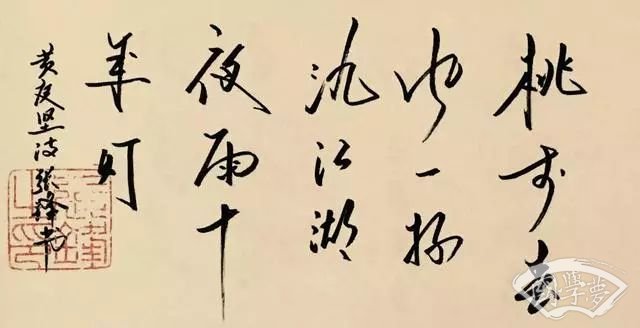 桃李春
风一杯
酒江湖
夜雨十
年灯
黄庭坚诗张锋书
国学梦